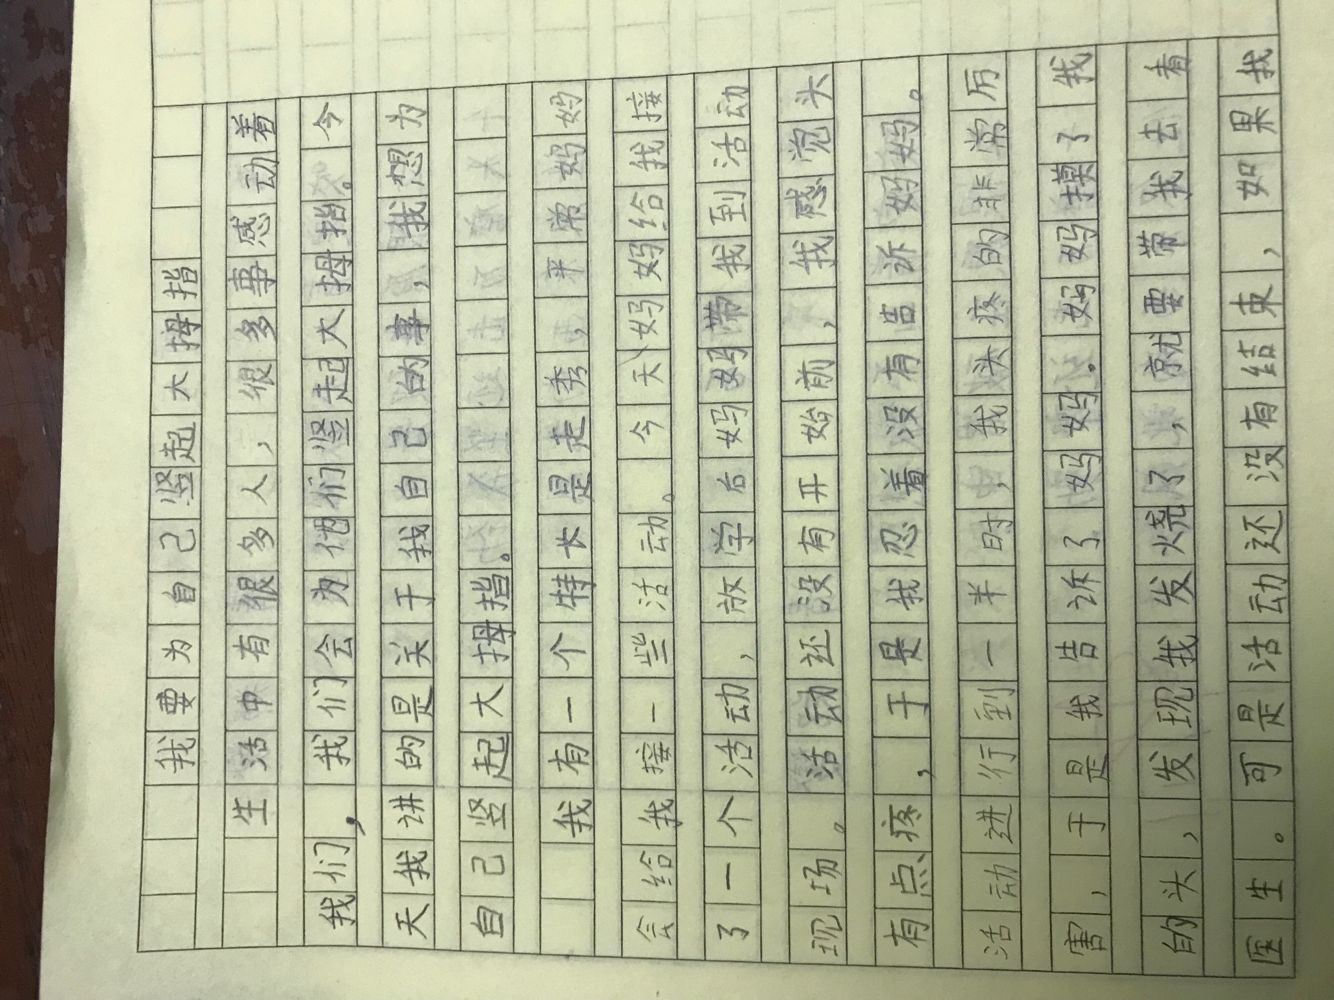 我要为自己竖起大拇指
生活中有很多人，很多事感动着
我们，我们会为他们竖起大拇指。今
天我讲的是关于我自己的事，我想为
自己竖起大拇指。
我有一个特长是走秀，平常妈妈
会给我接一些活动。今天妈妈给我接
了一个活动，放学后妈妈带我到活动
现场。活动还没有开始前，我感觉头
有点疼，于是我忍着没有告诉妈妈。
活动进行到一半时，我头疼的非常厉
害，于是我告诉了妈妈。妈妈摸了我
的头，发现我发烧了，就要带我去看
医生。可是活动还没有结束，如果我